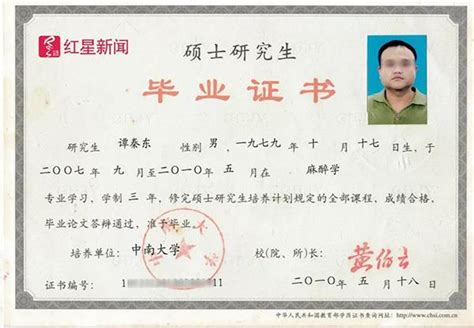 红星新闻
硕士研究生
毕业证书
研究生 谭秦东 性别 男，一九七九年 十 月 十七日生，于
二〇〇七年 九 月至二〇一〇年 五 月在 麻醉学
专业学习，学制 三 年，修完硕士研究生培养计划规定的全部课程，成绩合格，
毕业论文答辩通过，准予毕业。
培养单位： 中南大学 校(院、所)长： 黄伯云
证书编号： 1 11 二〇一〇年 五 月 十八 日
中华人民共和国教育部学历证书查询网址：http://www.chsi.com.cn